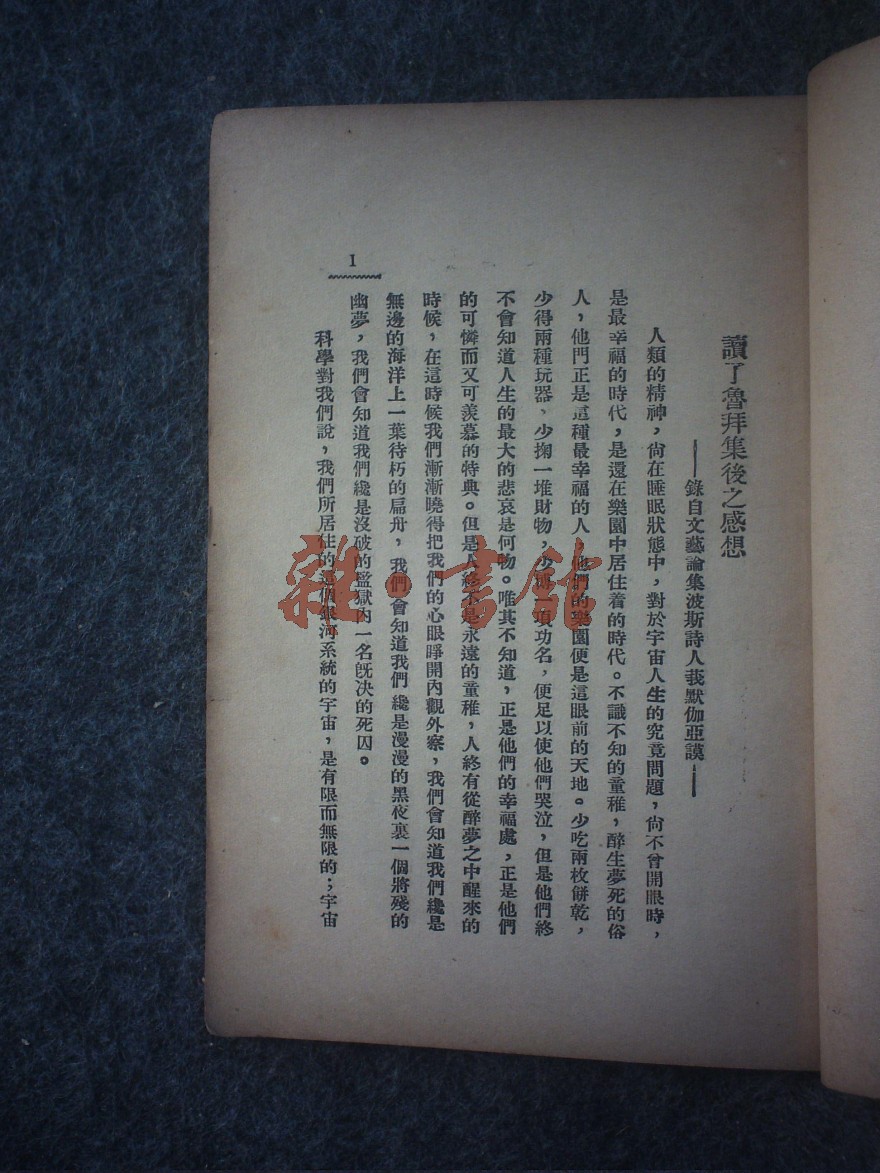 讀了魯拜集後之感想
——錄自文藝論集波斯詩人莪默伽亞謨——
人類的精神，尙在睡眠狀態中，對於宇宙人生的究竟問題，尙不曾開眼時，
是最幸福的時代，是還在樂園中居住着的時代。不識不知的童稚，醉生夢死的俗
人，他門正是這種最幸福的人，他們的樂園便是這眼前的天地。少吃兩枚餅乾，
少得兩種玩器，少掬一堆財物，少博一項功名，便足以使他們哭泣，但是他們終
不會知道人生的最大的悲哀是何物。唯其不知道，正是他們的幸福處，正是他們
的可憐而又可羨慕的特典。但是人終不是永遠的童稚，人終有從醉夢之中醒來的
時候，在這時候我們漸漸曉得把我們的心眼睜開內觀外察，我們會知道我們纔是
無邊的海洋上一葉待朽的扁舟，我們會知道我們纔是漫漫的黑夜裏一個將殘的
幽夢，我們會知道我們纔是沒破的監獄內一名旣決的死囚。
科學對我們說，我們所居住的這個銀河系統的宇宙，是有限而無限的；宇宙
1
雜·書館